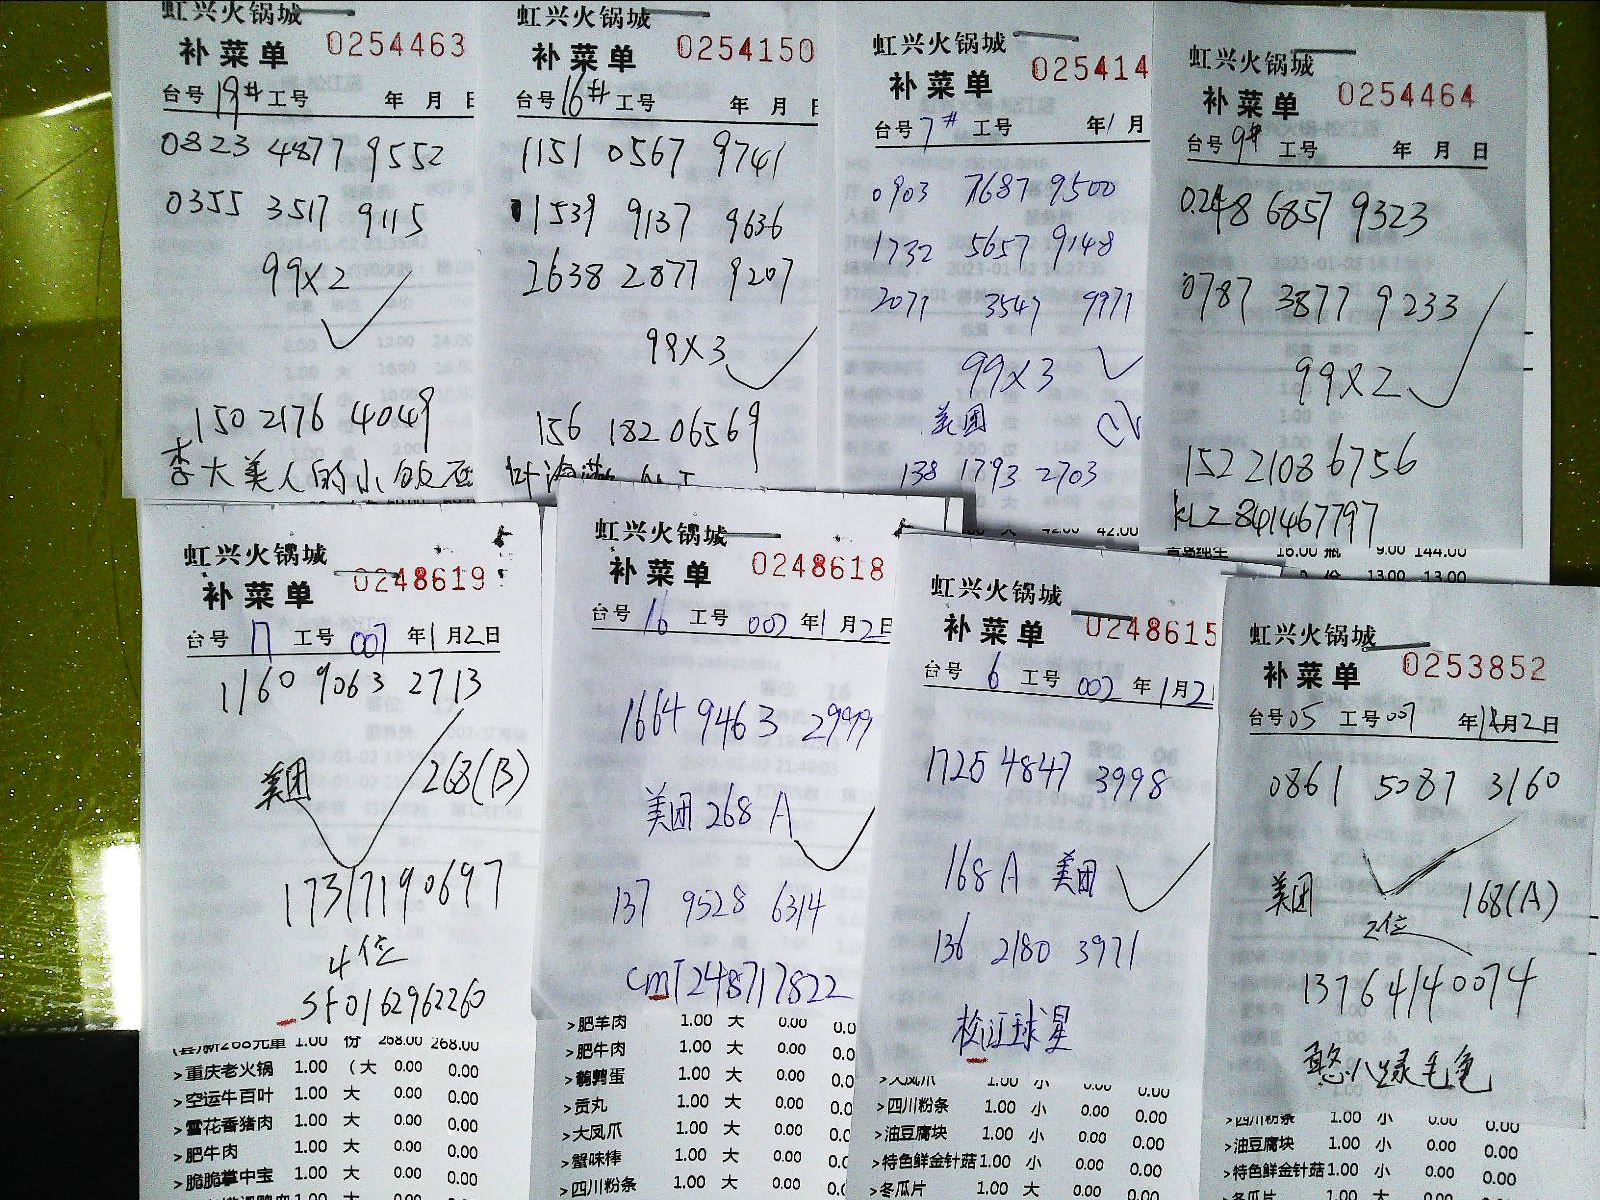 虹兴火锅城
补菜单 0254463
台号 19# 工号 年 月
0823 4877 9552
0355 3517 9115
99×2
150 2176 4049
李大美人的小饭店
虹兴火锅城
补菜单 0254150
台号 16# 工号 年 月
1151 0567 9741
1539 9137 9636
2638 2877 9207
99×3
156 1820 6569
虹兴火锅城
补菜单 025414
台号 7# 工号 年1月
0903 7687 9500
1732 5657 9148
2071 3547 9971
99×3
美团
138 1793 2703
42.00 42.00
虹兴火锅城
补菜单 0254464
台号 9# 工号 年 月 日
0248 6857 9323
0787 3877 9233
99×2
152 2108 6756
KLZ841467797
青岛纯生 16.00 瓶 9.00 144.00
份 13.00 13.00
虹兴火锅城
补菜单 0248619
台号 17 工号 007 年1月2日
1160 9063 2713
美团 268(B)
17317190697
4位
SF0162962260
1.00 份 268.00 268.00
>重庆老火锅 1.00 (大 0.00 0.00
>空运牛百叶 1.00 大 0.00 0.00
>雪花香猪肉 1.00 大 0.00 0.00
>肥牛肉 1.00 大 0.00 0.00
>脆脆掌中宝 1.00 大 0.00 0.00
虹兴火锅城
补菜单 0248618
台号 16 工号 007 年1月2日
1664 9463 2999
美团268 A
137 9528 6314
cmT248717822
>肥羊肉 1.00 大 0.00 0.0
>肥牛肉 1.00 大 0.00 0.0
>鹌鹑蛋 1.00 大 0.00 0.0
>贡丸 1.00 大 0.00 0.0
>大凤爪 1.00 大 0.00 0.0
>蟹味棒 1.00 大 0.00 0.0
>四川粉条 1.00 大 0.00 0.0
虹兴火锅城
补菜单 0248615
台号 6 工号 007 年1月2
1725 4847 3998
168A 美团
136 2180 3971
松江球星
>大凤爪 1.00 小 0.00 0.00
>四川粉条 1.00 小 0.00 0.00
>油豆腐块 1.00 小 0.00 0.00
>特色鲜金针菇 1.00 小 0.00 0.00
>冬瓜片 1.00 大 0.00 0.00
虹兴火锅城
补菜单 0253852
台号 05 工号 007 年1月2日
0861 5087 3160
美团 168(A)
2位
13764140074
憨小绿毛龟
>四川粉条 1.00 小 0.00 0.00
>油豆腐块 1.00 小 0.00 0.00
>特色鲜金针菇 1.00 小 0.00 0.00
>冬瓜片 1.00 大 0.00 0.00